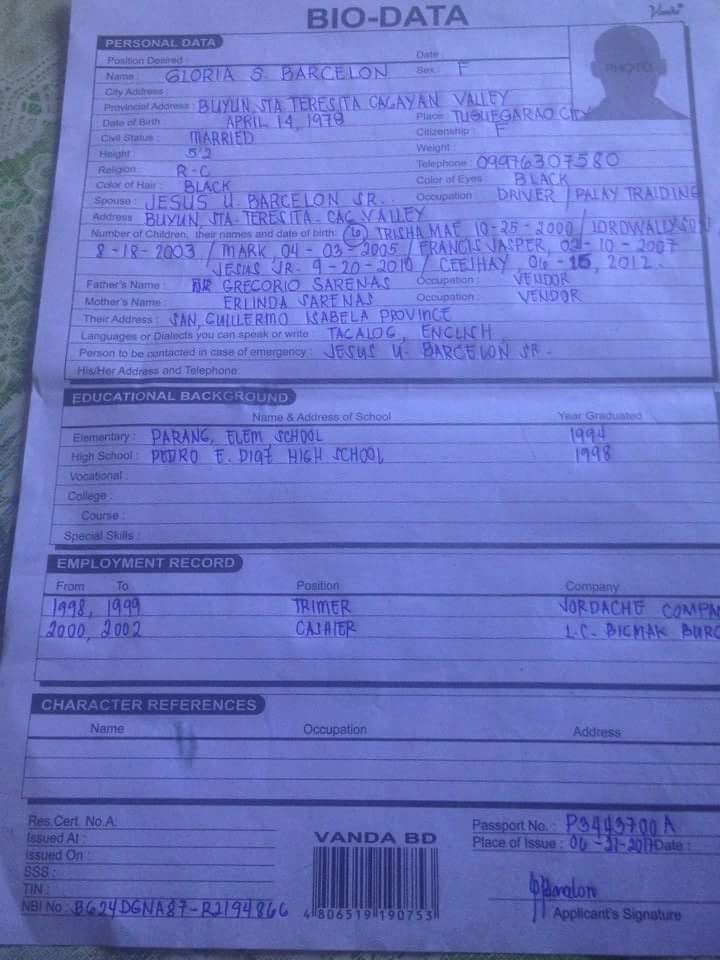 BIO-DATA
Vanda
PERSONAL DATA
Position Desired : Date :
Name : GLORIA S. BARCELON Sex : F
PHOTO
City Address :
Provincial Address : BUYUN, STA TERESITA CAGAYAN VALLEY
Date of Birth : APRIL 14, 1978 Place : TUGUEGARAO CITY
Civil Status : MARRIED Citizenship : F
Height : 5'2 Weight :
Religion : R-C Telephone : 09976307580
Color of Hair : BLACK Color of Eyes : BLACK
Spouse : JESUS U. BARCELON SR. Occupation : DRIVER / PALAY TRAIDING
Address : BUYUN, STA. TERESITA. CAG. VALLEY
Number of Children, their names and date of birth: (6) TRISHA MAE 10-25-2000 / JORDWALLYSON /
8-18-2003 / MARK, 04-03-2005 / FRANCIS JASPER, 02-10-2007
JESUS JR. 9-20-2010 / CEEJHAY, 06-15, 2012.
Father's Name : GREGORIO SARENAS Occupation : VENDOR
Mother's Name : ERLINDA SARENAS Occupation : VENDOR
Their Address : SAN, GUILLERMO ISABELA PROVINCE
Languages or Dialects you can speak or write : TAGALOG, ENGLISH
Person to be contacted in case of emergency : JESUS U. BARCELON SR.
His/Her Address and Telephone:
EDUCATIONAL BACKGROUND
Name & Address of School Year Graduated
Elementary : PARANG, ELEM, SCHOOL 1994
High School : PEDRO E. DIAZ HIGH SCHOOL 1998
Vocational :
College :
Course :
Special Skills :
EMPLOYMENT RECORD
From To Position Company
1998, 1999 TRIMER JORDACHE COMPA
2000, 2002 CASHIER L.C. BIGMAK BURG
CHARACTER REFERENCES
Name Occupation Address
Res.Cert. No.A:
Issued At :
Issued On :
SSS :
TIN :
NBI No : B624DGNA87-R2194866
VANDA BD
4 806519 190753
Passport No. : P3443700A
Place of Issue : 06-21-2017 Date :
Applicant's Signature